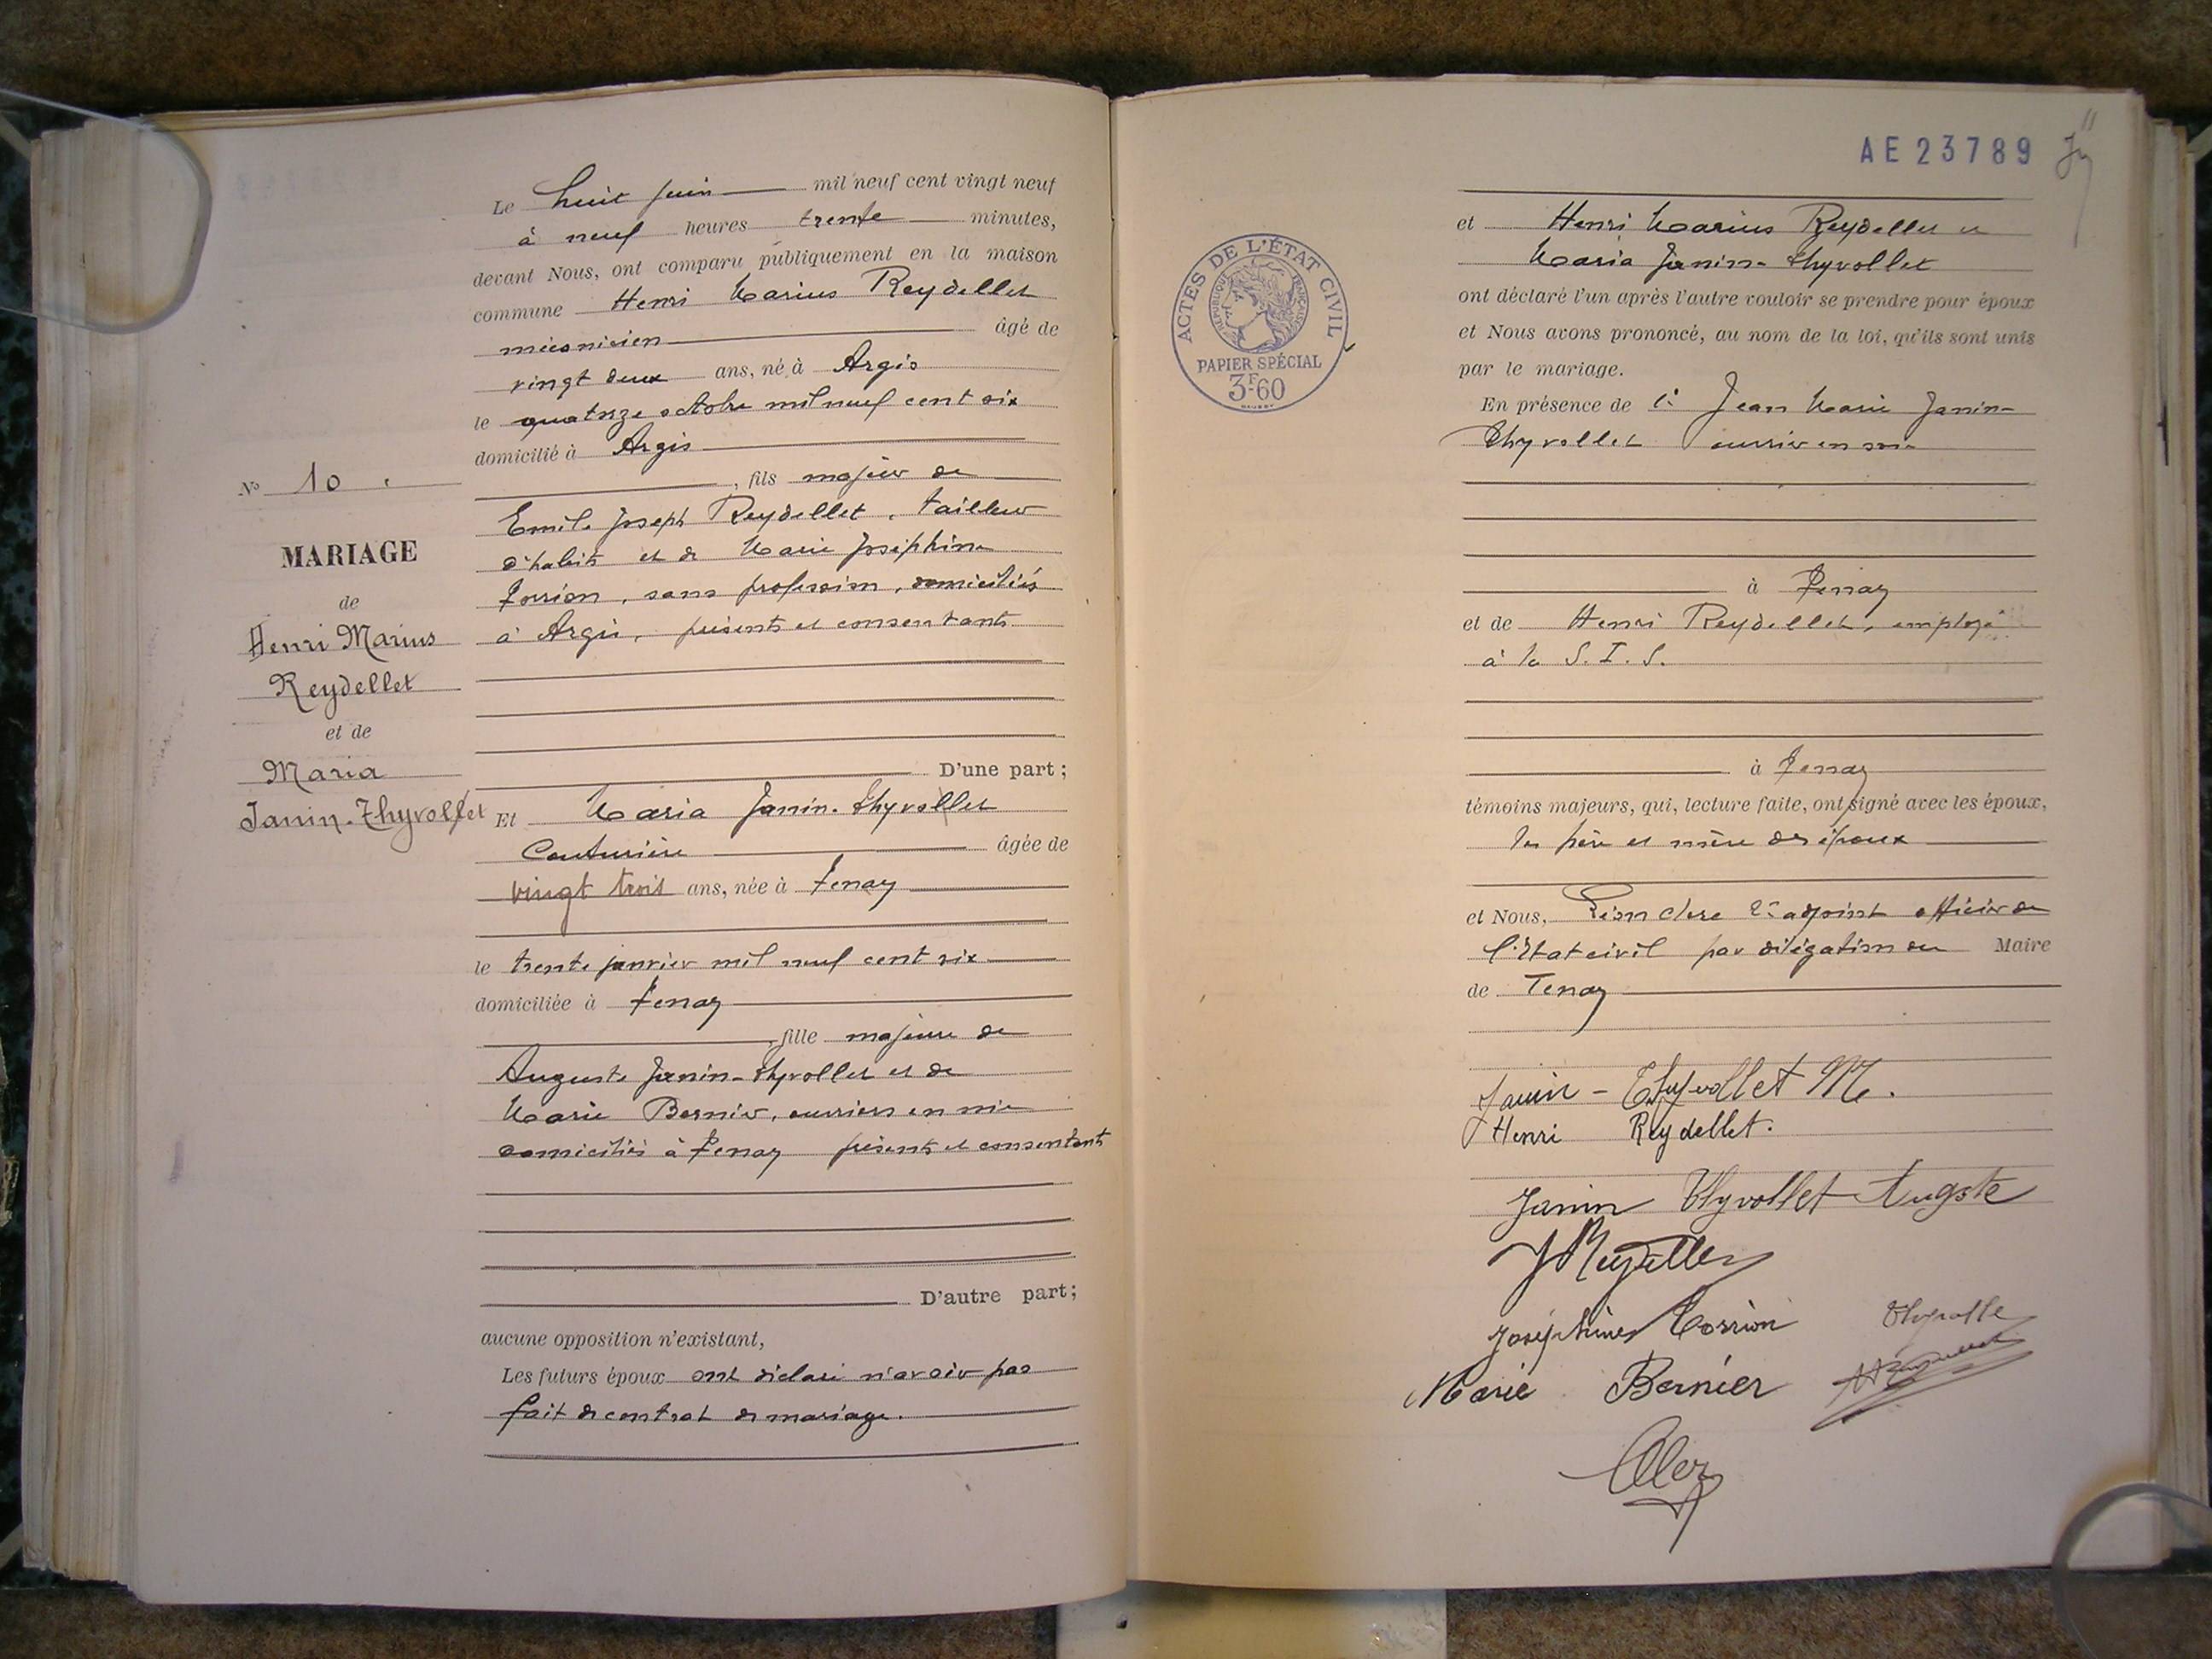 Le huit juin mil neuf cent vingt neuf
à neuf heures trente minutes,
devant Nous, ont comparu publiquement en la maison
commune Henri Marius Reydellet
mécanicien âgé de
vingt deux ans, né à Argis
le quatorze octobre mil neuf cent six
domicilié à Argis
, fils majeur de
Emile Joseph Reydellet, tailleur
d'habits et de Marie Joséphine
Torrion, sans profession, domiciliés
à Argis, présents et consentants
D'une part ;
N° 10
MARIAGE
de
Henri Marius
Reydellet
et de
Maria
Janin-Thyvollet
Et Maria Janin-Thyvollet
Couturière âgée de
vingt trois ans, née à Tenay
le trente janvier mil neuf cent six
domiciliée à Tenay
, fille majeure de
Auguste Janin-Thyvollet et de
Marie Bernier, ouvriers en soie
domiciliés à Tenay présents et consentants
D'autre part ;
aucune opposition n'existant,
Les futurs époux ont déclaré n'avoir pas
fait de contrat de mariage.
AE23789
11
ACTES DE L'ÉTAT CIVIL
RÉPUBLIQUE FRANÇAISE
PAPIER SPÉCIAL
3F60
et Henri Marius Reydellet et
Maria Janin-Thyvollet
ont déclaré l'un après l'autre vouloir se prendre pour époux
et Nous avons prononcé, au nom de la loi, qu'ils sont unis
par le mariage.
En présence de Jean Marie Janin-
Thyvollet ouvrier en soie
à Tenay
et de Henri Reydellet, employé
à la S.I.S.
à Tenay
témoins majeurs, qui, lecture faite, ont signé avec les époux,
les père et mère des époux
et Nous, Léon adjoint officier de
l'Etat civil par délégation du Maire
de Tenay
Janin-Thyvollet M.
Henri Reydellet.
Janin Thyvollet Augste
J Reydellet
Joséphine Torrion
Thyvolle
Marie Bernier